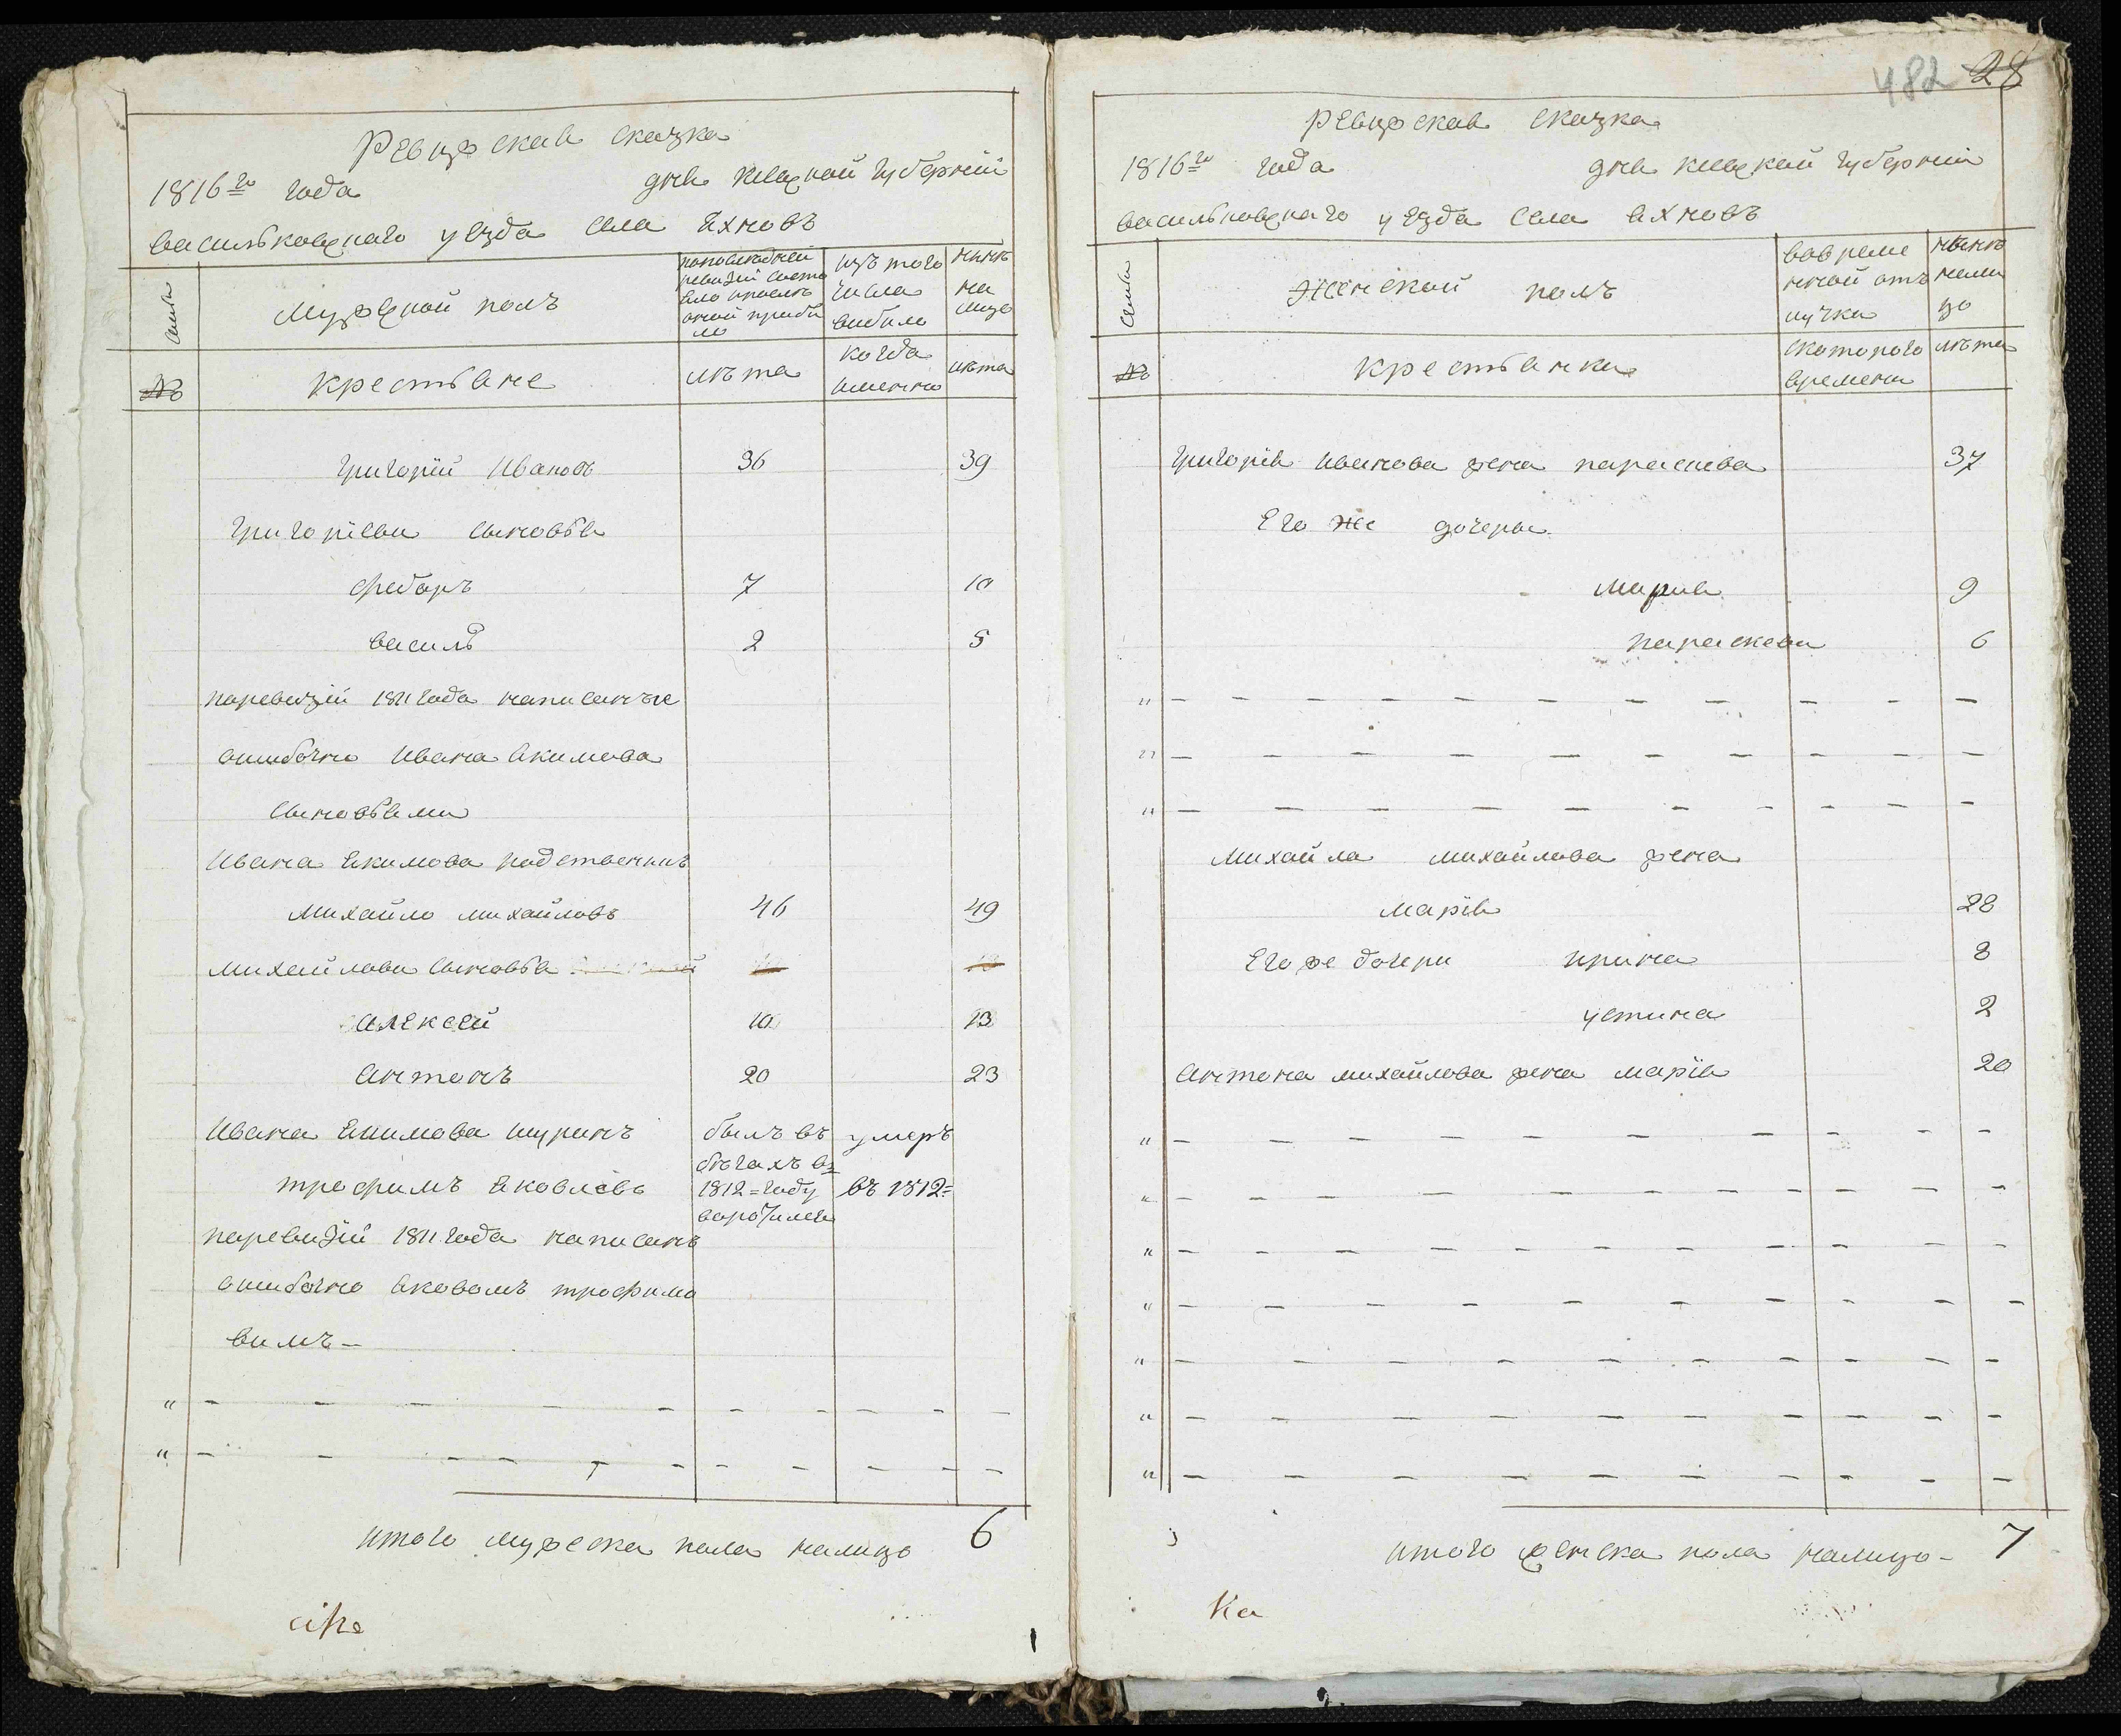 482 28
Ревизская сказка
1816го года дня Киевской губернии
васильковскаго уезда села Яхновъ
семьи
Мужеской полъ
попоследней
ревизии состо
яло и после
оной прибы
ло
изъ того
числа
выбыло
ныне
на
лицо
№
крестьяне
лѣта
когда
именно
лѣта
Григорій Ивановъ 36 39
Григоріевы сыновья
Федоръ 7 10
василь 2 5
поревизіи 1811 года написаные
ошибочно Ивана Якимова
сыновьями
Ивана Якимова родственникъ
Михайло михайловъ 46 49
михайловы сыновья
алексей 10 13
Антонъ 20 23
Ивана Якимова шуринъ
былъ въ
бѣгахъ въ
1812=году
воротился
умеръ
въ 1812=
трофимъ Яковлевъ
поревизіи 1811 года написанъ
ошибочно Яковомъ трофимо
вимъ-
итого мужеска пола налицо 6
Ревизская сказка
1816го года дня Киевской губерніи
васильковскаго уезда села Яхновъ
семьи
Женской полъ
вовреме
нной отъ
лучки
ныне
нали
цо
№
крестьянки
скоторого
времени
лѣта
Григорія Иванова жена параскева 37
Его же дочеры
Мария 9
параскева 6
Михайла михайлова жена
Марія 28
Его же дочери Ирина 8
устина 2
Антона михайлова жена Марія 20
итого женска пола налицо- 7
Ка